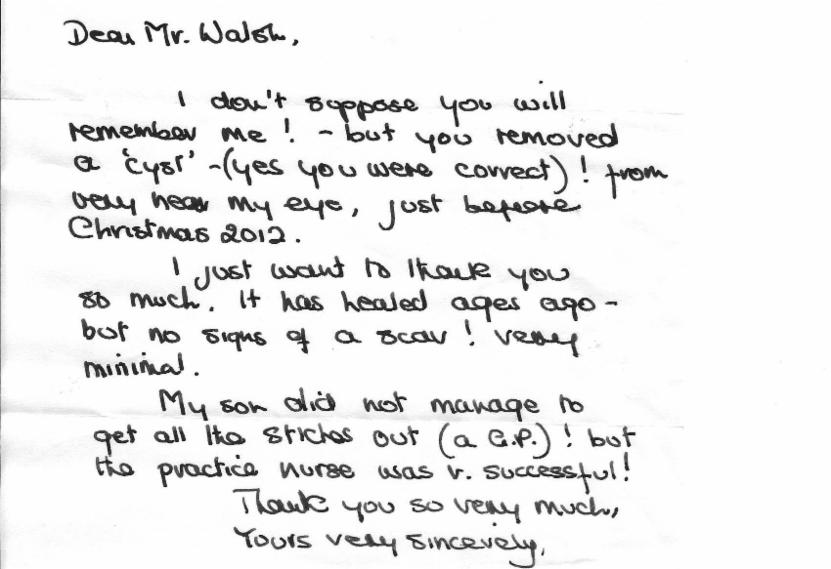 Dear Mr. Walsh,
I don't suppose you will
remember me! - but you removed
a 'cyst' - (yes you were correct)! from
very near my eye, just before
Christmas 2012.
I just want to thank you
so much. It has healed ages ago -
but no signs of a scar! very
minimal.
My son did not manage to
get all the stiches out (a G.P.)! but
the practice nurse was v. successful!
Thank you so very much,
Yours very sincerely,